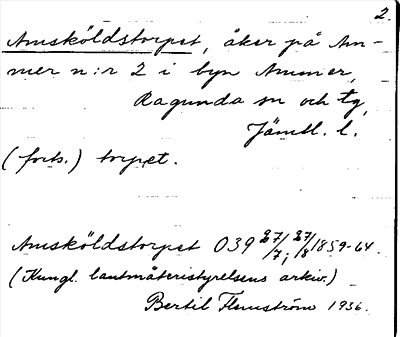 2.
Amsköldstorpet, åker på Am-
mer n:r 2 i byn Ammer,
Ragunda sn och tg,
Jämtl. l.
(forts.) torpet.
Amsköldstorpet 039 27/7; 27/8 1859-64.
(Kungl. lantmäteristyrelsens arkiv.)
Bertil Flemström 1936.